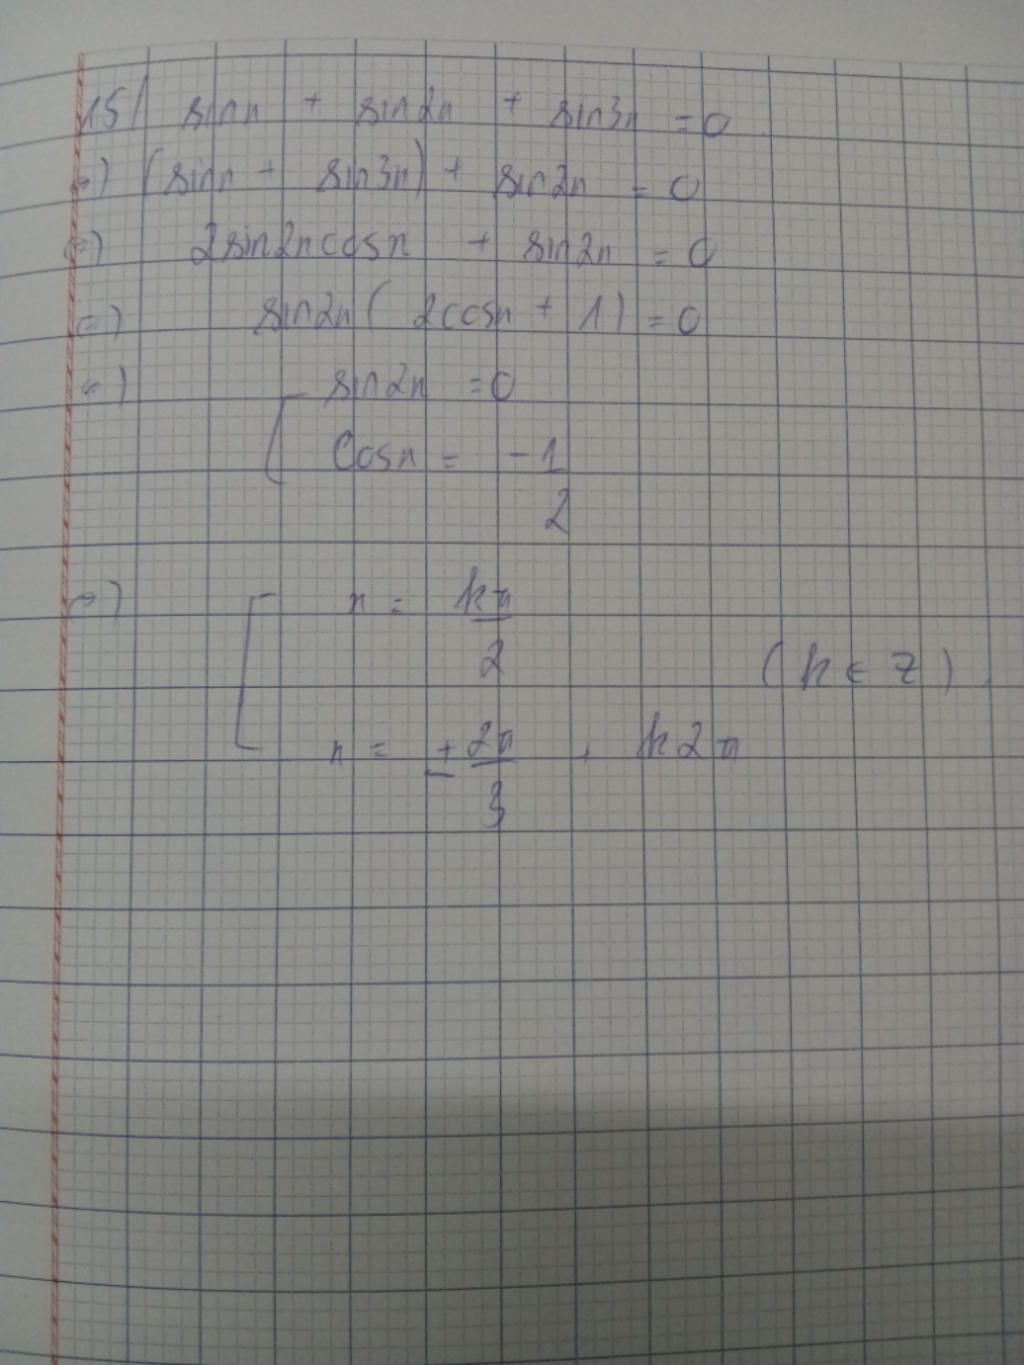 15/ sinx + sin2x + sin3x = 0
⇔) (sinx + sin3x) + sin2x = 0
⇔) 2sin2xcosx + sin2x = 0
⇔) sin2x( 2cosx + 1) = 0
⇔) [ sin2x = 0
cosx = -1/2
⇔) [ x = kπ/2
(k ∈ Z)
x = ± 2π/3 + k2π